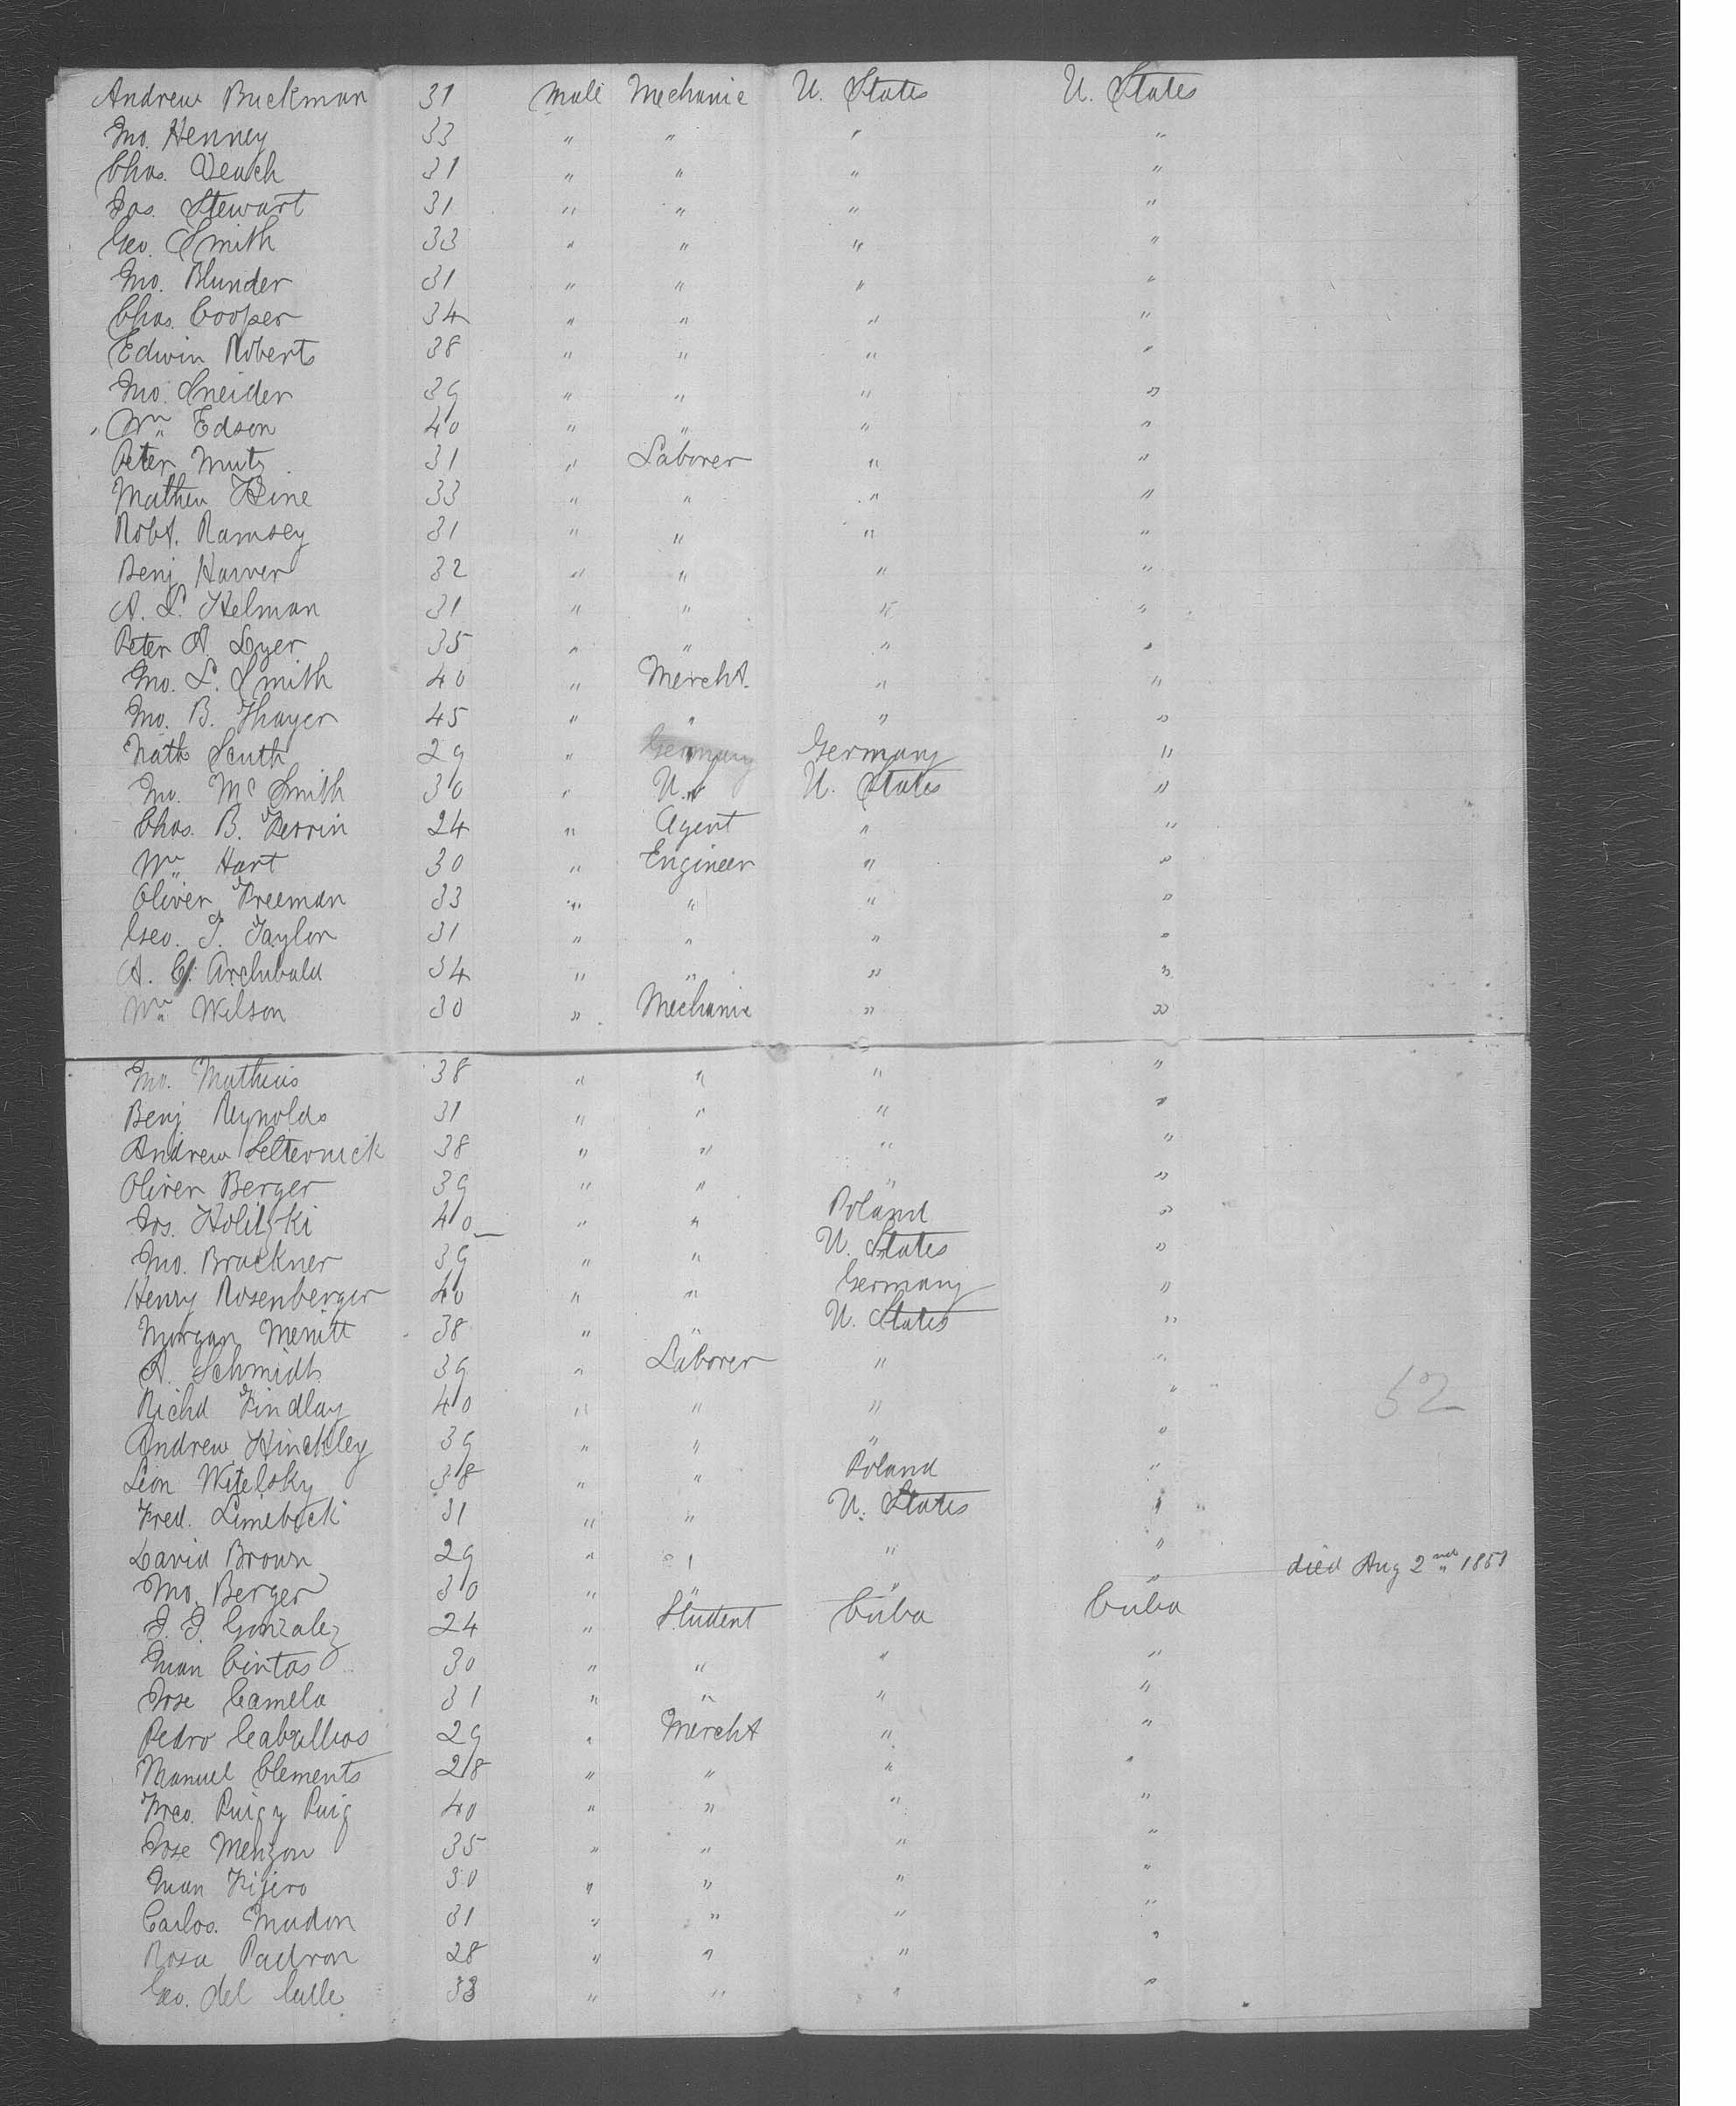 Andrew Buckman 31 Male Mechanic U. States U. States
Jno. Henney 33 " " " "
Chas. Veach 31 " " " "
Jas. Stewart 31 " " " "
Geo. Smith 33 " " " "
Jno. Blunder 31 " " " "
Chas. Cooper 34 " " " "
Edwin Roberts 38 " " " "
Jno. Sneider 39 " " " "
Wm Edson 40 " " " "
Peter Mutz 31 " Laborer " "
Mathew Hine 33 " " " "
Robt. Ramsey 31 " " " "
Benj Harver 32 " " " "
A. L. Helman 31 " " " "
Peter A. Dyer 35 " " " "
Jno. L. Smith 40 " Mercht. " "
Jno. B. Thayer 45 " " " "
Nath Scuth 29 " Germany "
Jno. Mc Smith 30 " U. " U. States "
Chas. B. Perrin 24 " Agent " "
Wm Hart 30 " Engineer " "
Oliver Freeman 33 " " " "
Geo. T. Taylor 31 " " " "
A. C. Archibald 34 " " " "
Wm Wilson 30 " Mechanic " "
Jno. Matheis 38 " " " "
Benj Reynolds 31 " " " "
Andrew 38 " " " "
Oliver Berger 39 " " " "
Jos. Holitzki 40 " " Poland "
Jno. Bruckner 39 " " U. States "
Henry Rosenberger 40 " " Germany "
Morgan Merritt 38 " " U. States "
A. Schmidt 39 " Laborer " "
Richd Findlay 40 " " " " 52
Andrew Hinckley 39 " " " "
Leon Witelsky 38 " " Poland "
Fred. Limebeck 31 " " U. States "
David Brown 29 " " " "
Jno. Berger 30 " " " " died Aug 2nd 1851
J. J. Gonzalez 24 " Student Cuba Cuba
Juan Cintas 30 " " " "
Jose Camelo 31 " " " "
Pedro Caballios 29 " Mercht " "
Manuel Clements 28 " " " "
Frco. Puig y Puig 40 " " " "
Jose Menzon 35 " " " "
Juan 30 " " " "
Carlos. Mudon 31 " " " "
Rosa Padron 28 " " " "
Geo. del Calle 33 " " " "